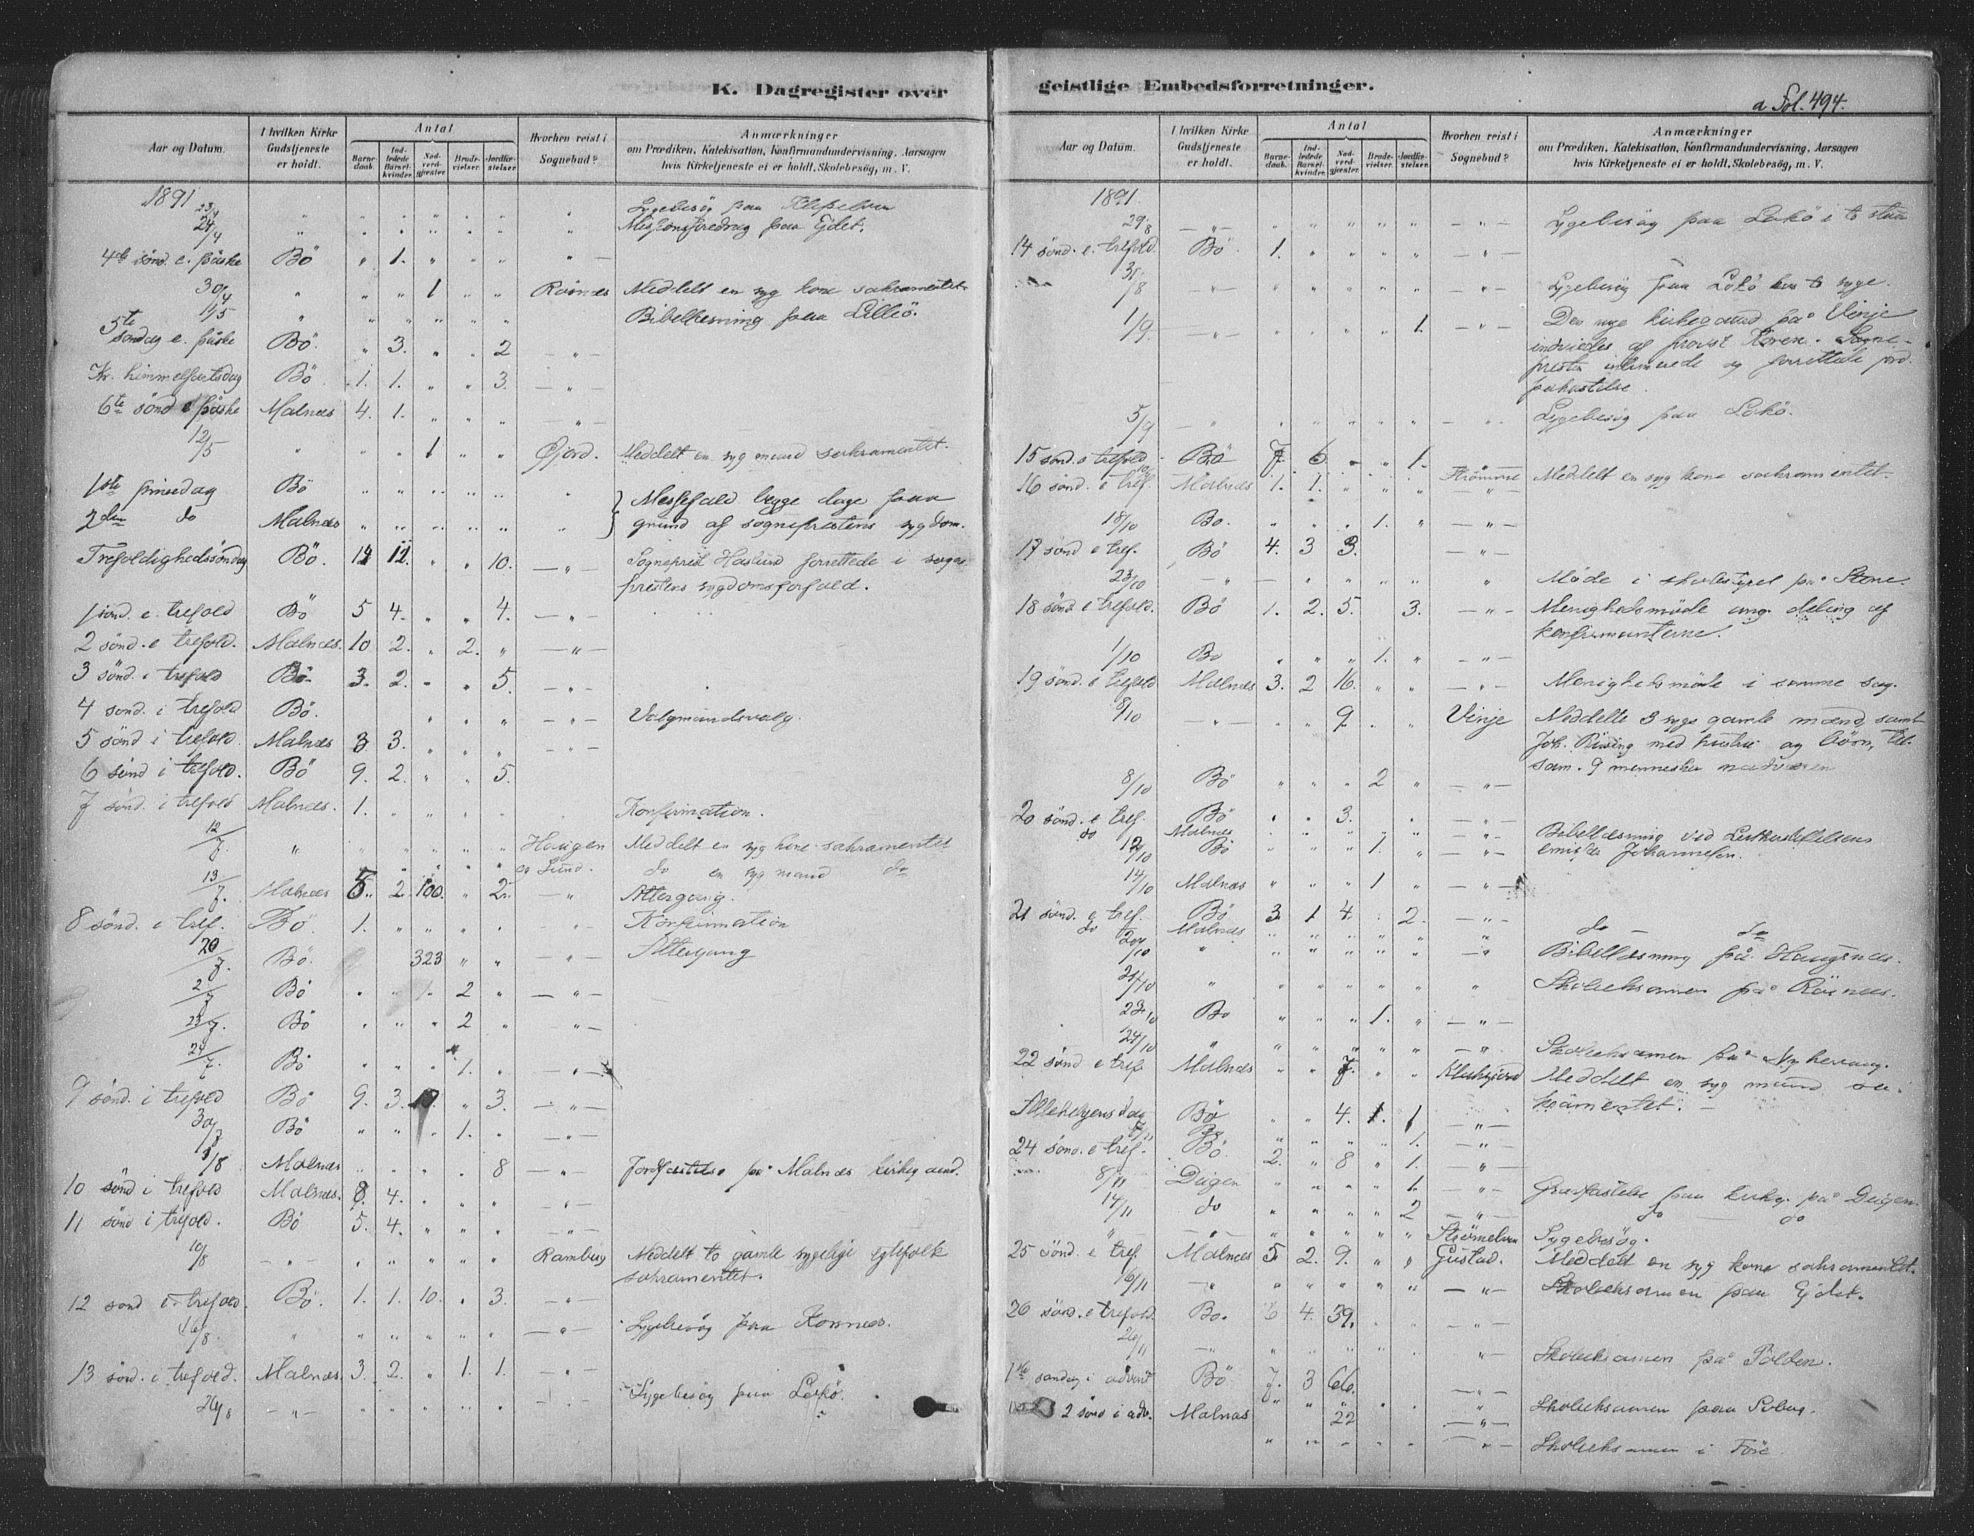 K. Dagregister over geistlige Embedsforretninger.
a Fol. 494.
Aar og Datum. I hvilken Kirke Gudstjeneste er holdt. Antal Barnedaab. Indledede Barselkvinder. Nadverdgjæster Brudevielser. Jordfæstelser Hvorhen reist i Sognebud? Anmærkninger om Prædiken, Katekisation, Konfirmandundervisning, Aarsagen hvis Kirketjeneste ei er holdt, Skolebesøg, m. V.
1891
23/4 " " " " " " " Sygebesög paa
24/4 " " " " " " " Missionsforedrag paa Ejdet.
4de sönd. e. påske Bö " 1. " " " "
30/4 " " " 1 " " Raånes Meddelt en syg kone sakramentet
1/5 " " " " " " Bibellæsning paa Lilleö.
5te söndag e. påske Bö. " 3. " " 2 "
Kr. himmelfartsdag Bö 1. 1. " " 3. "
6te sönd e påske Malnæs 4. 1. " " " "
12/5 " " " 1 " " Öjord. Meddelt en syg mand sakramentet.
1ste pinsedag Bö " " " " " " Messefald begge dage paa
2den do Malnæs " " " " " " grund af sogneprestens sygdom.
Trefoldighedssöndag Bö. 14 12. " " 10. " Sogneprest Haslund forrettede i sogne-
prestens sygdomsforfald.
1 sönd. e. trefold Bö 5 4. " " 4. "
2 sönd. e trefold. Malnæs. 10 2. " 2. " "
3 sönd. i trefold Bö 3. 2. " " 5. "
4 sönd. i trefold Bö. " " " Valgmandsvalg.
5 sönd i trefold. Malnæs 3 3. " " " "
6 sönd i trefold. Bö 9. 2. " " 5.
7 sönd. i trefold Malnæs. 1. " " " " Konfirmation.
12/7. " " " " " " Haugen Meddelt en syg kone sakramentet
og Lund. do en syg mand do
13/7. Malnæs 5. 2 100. " 2. " Altergang.
8 sönd. e tref. Bö 1. " " " " " Konfirmation
20/7. Bö. 323 " " " Altergang
2/7 Bö " " 2 " "
23/7. Bö " " " 2 " "
24/7. Bö " " " 1. " "
9 sönd. i trefold Bö 9. 3. " 3. "
30/7 Bö " " " 1. " "
1/8 Malnæs " " " " 8 " Jordfæstelse på Malnæs kirkegaard.
10 sönd i trefold Malnæs. 8. 4. " " " "
11 sönd i trefold. Bö 5. 4. " " " "
10/8 " " " " " " Ramberg Meddelt to gamle sygelige ægtefolk
sakramentet.
12 sönd e. trefold. Bö. 1. 1. 10. " 3. "
16/8 " " " " " " " Sygebesög paa
13 sönd. i trefold. Malnæs. 3. 2. " 1. 1. "
26/8 " " " " " " Sygebesög paa
Aar og Datum. I hvilken Kirke Gudstjeneste er holdt. Antal Barnedaab. Indledede Barselkvinder. Nadverdgjæster. Brudevielser. Jordfæstelser. Hvorhen reist i Sognebud? Anmærkninger om Prædiken, Katekisation, Konfirmandundervisning, Aarsagen hvis Kirketjeneste ei er holdt, Skolebesøg, m. V.
1891.
29/8 " " " " " " " Sygebesög paa Lokö i to
14 sönd. e. trefold. Bö. 1. " " " " "
31/8 " " " " " " " Sygebesög paa Lokö hos to syge.
1/9. " " " " " 1. " Den nye kirkegaard på Vinje
indviedes af provst Koren. Sogne-
prest forrettede jord-
påkastelse.
5/9 " " " " " " " Sygebesög paa Lokö.
15 sönd. e trefold Bö 7. 6. " " 1.
16 sönd. e tref. Malnæs 1. 1. " " " Meddelt en syg kone sakramentet.
18/10 Bo. " " " 1. " "
17 sönd e tref. Bö 4. 3 3. "
23/10 " " " " " " " Möde i skolestyret på Stene.
18 sönd. e trefold. Bö 1. 2. 5. 3. " Menighedsmöde ang. deling af
konfirmanterne.
1/10 Bo " " " 1. " "
19 sönd. e trefold Malnæs 3. 2 16. " " " Menighedsmöde i samme sag.
8/10 " " " 9 " " Vinje Meddelte 3 syge gamle mænd samt
Joh. med hustru og börn, til-
sam. 9 mennesker nadveren
8/10 Bö " " " 2 " "
20 sönd. e tref. Bö " " 3. " "
do Malnæs " " " " " " Bibellæsning ved Lutherstiftelsens
12/10 Bö " " " 1. " " Johannesen.
14/10 Malnæs " " " 1 " "
21 sönd. e tref. Bö 3. 1 4. " 2. "
do Malnæs " " " " " " do do
20/10 " " " " " " " Bibellæsning på Haugsnæs.
21/10 " " " " " " " Skoleeksamen på Raånæs.
23/10 Bo " " " 1. " "
24/10 " " " " " " Skoleeksamen på
22 sönd e tref Malnæs " " 7. " " Meddelt en syg mand sa-
kramentet.
Allehelgensdag Bö " " 4. 1. 1 "
Bö " " " " 1. "
24 sönd. e tref. Bö. 2. " 8 " 1. "
8/11 Dujgen " " " " 1. " Gravfæstelse paa kirkeg. på
14/11 do " " " " 2 " do do
" " " " " " " Sygebesög.
25 sönd. e tref. Malnæs 5 2. 9. " " Gustad. Meddelt en syg kone sakramentet.
16/11 " " " " " " " Skoleeksamen paa Ejdet.
26 sönd. e trefold. Bo. 6 4. 39. " "
26/11 " " " " " " " Skoleeksamen på
1ste söndag i advent Bö 7. 3 66. "
" " " " " " Skoleeksamen paa
2 sönd i adv. Malnæs 22 "
" " " " " " Skoleeksamen i Före